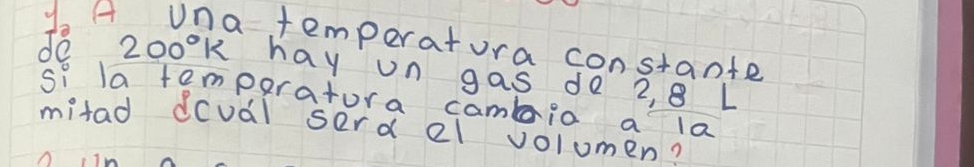 1. A una temperatura constante
de 200°K hay un gas de 2,8 L
si la temperatura cambia a la
mitad ¿cuál será el volumen?